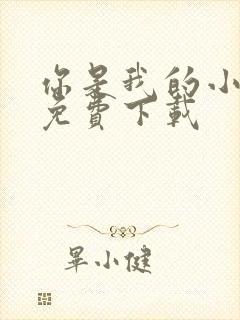 你是我的小
免費下載
畢小健